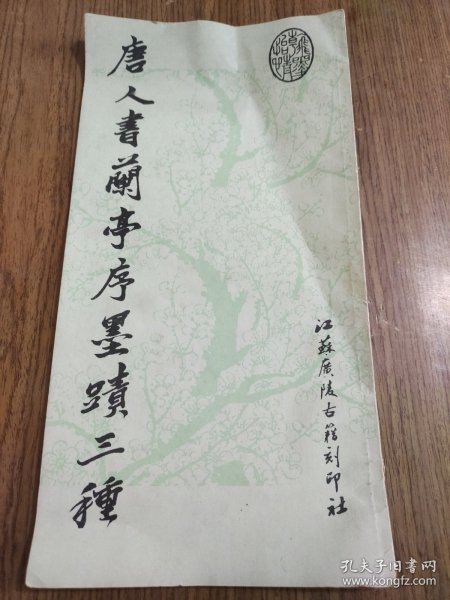 唐人書蘭亭序墨蹟三種
江蘇廣陵古籍刻印社
孔夫子旧书网
www.kongfz.com